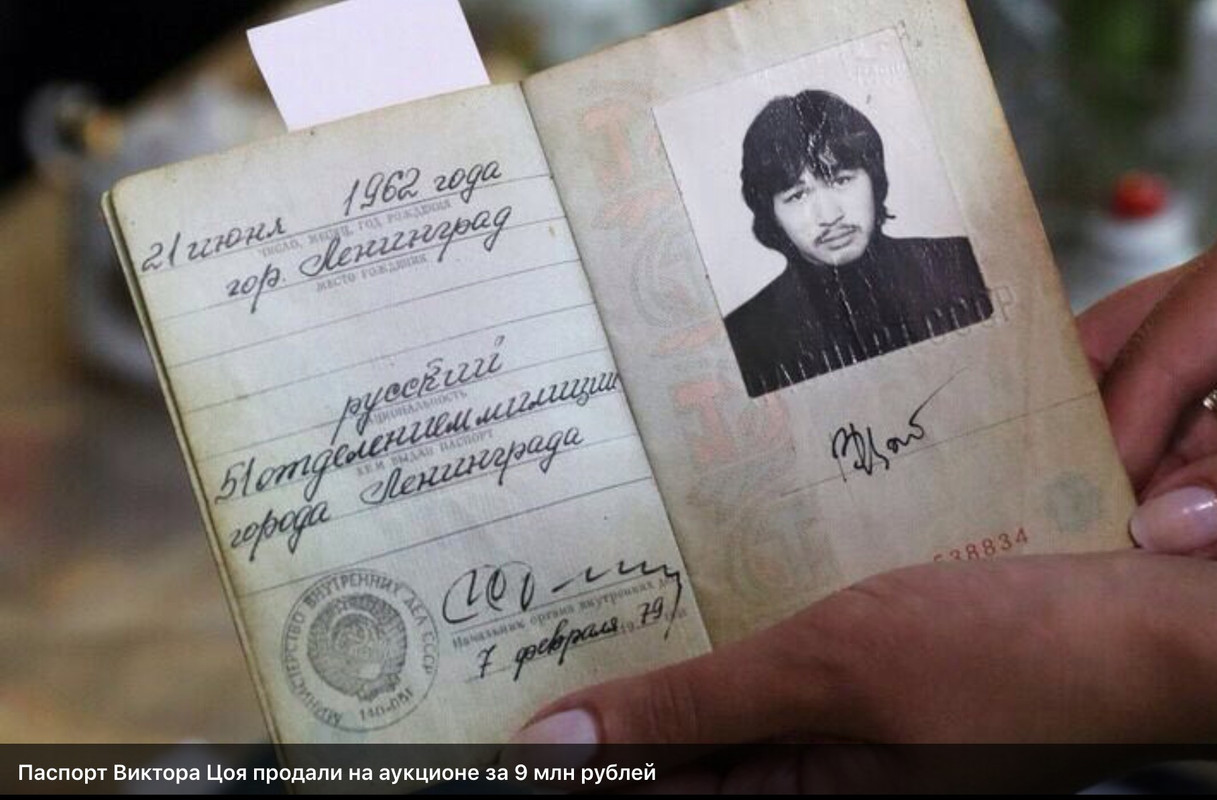 21 июня 1962 года
ЧИСЛО, МЕСЯЦ, ГОД РОЖДЕНИЯ
гор. Ленинград
МЕСТО РОЖДЕНИЯ
русский
НАЦИОНАЛЬНОСТЬ
51 отделением милиции
КЕМ ВЫДАН ПАСПОРТ
города Ленинграда
МИНИСТЕРСТВО ВНУТРЕННИХ ДЕЛ СССР
Начальник органа внутренних
7 февраля 1979
ПАСПОРТ СССР
638834
Паспорт Виктора Цоя продали на аукционе за 9 млн рублей